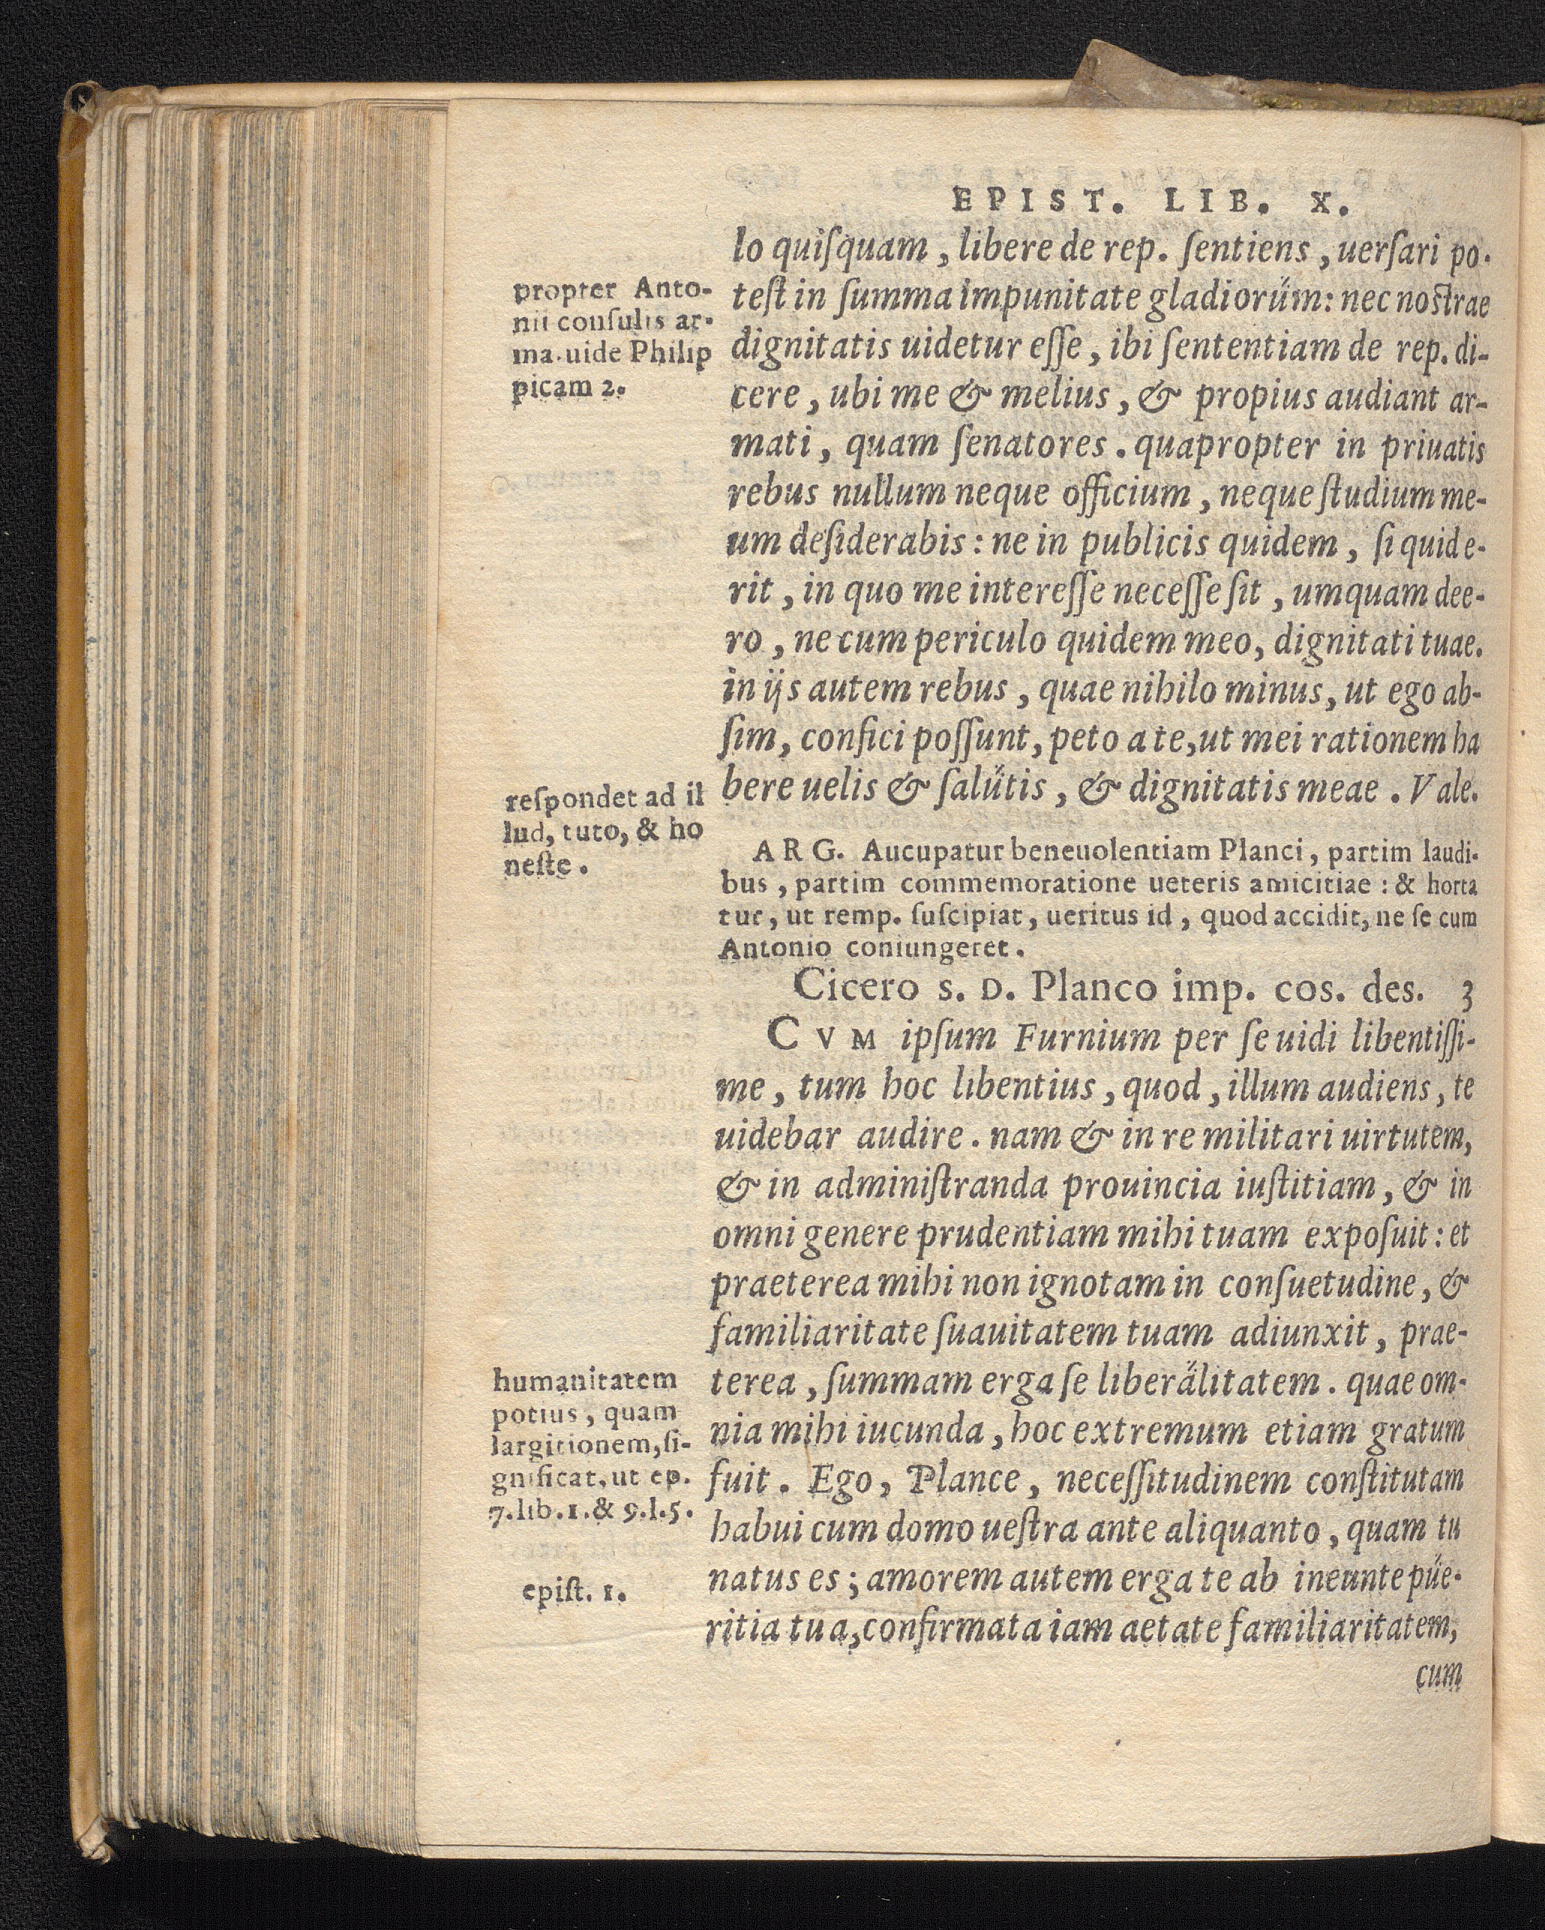 EPIST. LIB. X.
lo quiſquam, libere de rep. ſentiens, uerſari po-
teſt in ſumma impunitate gladiorum: nec noſtrae
dignitatis uidetur eſſe, ibi ſententiam de rep. di-
cere, ubi me & melius, & propius audiant ar-
mati, quam ſenatores. quapropter in priuatis
rebus nullum neque officium, neque ſtudium me-
um deſiderabis: ne in publicis quidem, ſi quid e-
rit, in quo me intereſſe neceſſe ſit, umquam dee-
ro, ne cum periculo quidem meo, dignitati tuae.
in ijs autem rebus, quae nihilo minus, ut ego ab-
ſim, confici poſſunt, peto a te, ut mei rationem ha
bere uelis & ſalutis, & dignitatis meae. Vale.
propter Anto-
nii conſulis ar-
ma. uide Philip
picam 2.
reſpondet ad il
lud, tuto, & ho
neſte.
ARG. Aucupatur beneuolentiam Planci, partim laudi-
bus, partim commemoratione ueteris amicitiae: & horta
tur, ut remp. ſuſcipiat, ueritus id, quod accidit, ne ſe cum
Antonio coniungeret.
Cicero S. D. Planco imp. cos. des. 3
CVM ipſum Furnium per ſe uidi libentiſſi-
me, tum hoc libentius, quod, illum audiens, te
uidebar audire. nam & in re militari uirtutem,
& in adminiſtranda prouincia iuſtitiam, & in
omni genere prudentiam mihi tuam expoſuit: et
praeterea mihi non ignotam in conſuetudine, &
familiaritate ſuauitatem tuam adiunxit, prae-
terea, ſummam erga ſe liberalitatem. quae om-
nia mihi iucunda, hoc extremum etiam gratum
fuit. Ego, Plance, neceſſitudinem conſtitutam
habui cum domo ueſtra ante aliquanto, quam tu
natus es; amorem autem erga te ab ineunte pue-
ritia tua, confirmata iam aetate familiaritatem,
cum
humanitatem
potius, quam
largitionem, ſi-
gnificat, ut ep.
7. lib. 1. & 9. l. 5.
epiſt. 1.